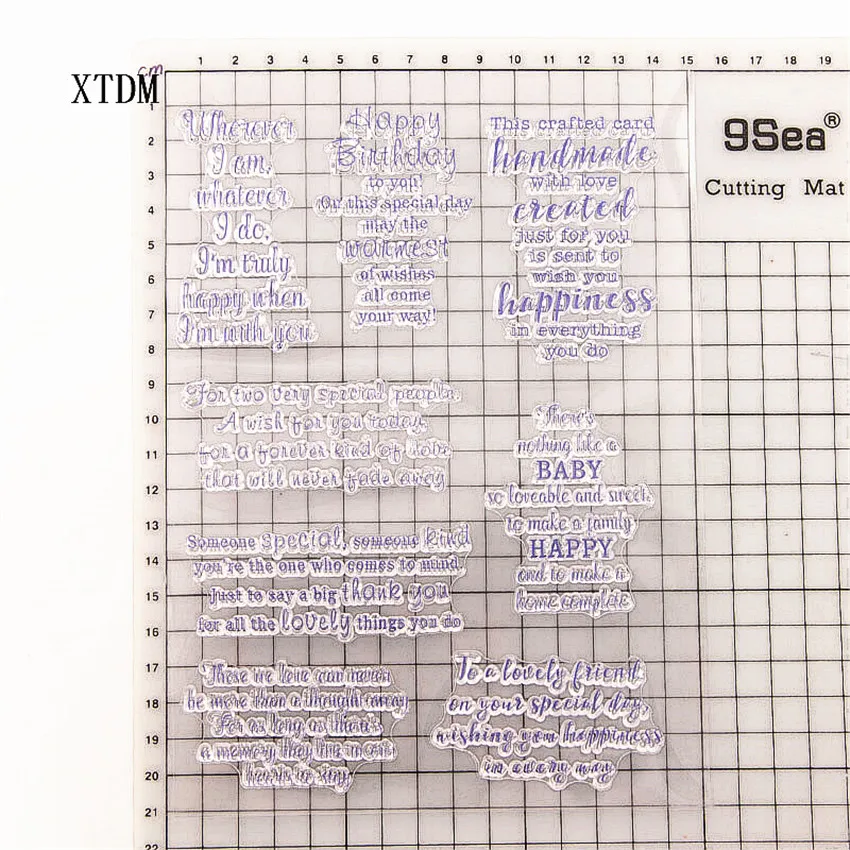 cm 1 2 3 4 5 6 7 8 9 10 11 12 13 14 15 16 17 18 19
XTDM
1
2
3
4
5
6
7
8
9
10
11
12
13
14
15
16
17
18
19
20
21
22
9Sea®
Cutting Mat
Wherever
I am,
whatever
I do,
I'm truly
happy when
I'm with you
Happy
Birthday
to you!
On this special day
may the
warmest
of wishes
all come
your way!
This crafted card
handmade
with love
created
just for you
is sent to
wish you
happiness
in everything
you do
For two very special people,
A wish for you today,
for a forever kind of love
that will never fade away
There's
nothing like a
BABY
so loveable and sweet,
to make a family
HAPPY
and to make a
home complete
Someone special, someone kind
you're the one who comes to mind
Just to say a big thank you
for all the lovely things you do
Those we love can never
be more than a thought away
For as long as there's
a memory they live in our
hearts to stay
To a lovely friend
on your special day,
wishing you happiness
in every way